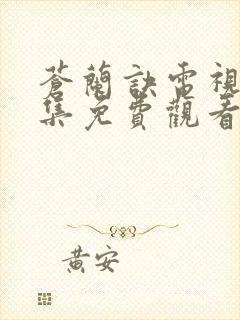 蒼蘭訣電視
集免費觀看
黃安